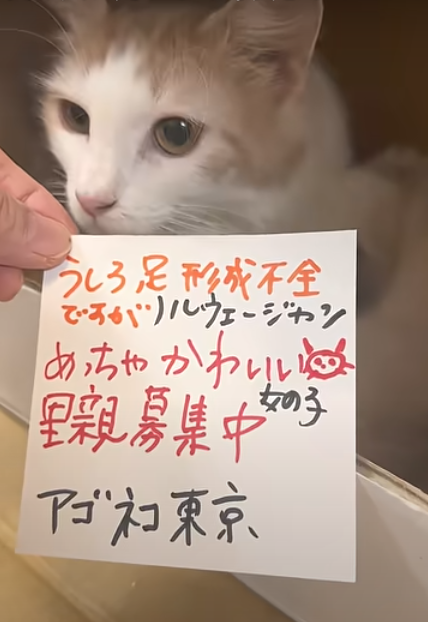 うしろ足 形成不全
ですが ノルウェージャン
めっちゃかわいい
女の子
里親募集中
アゴネコ東京